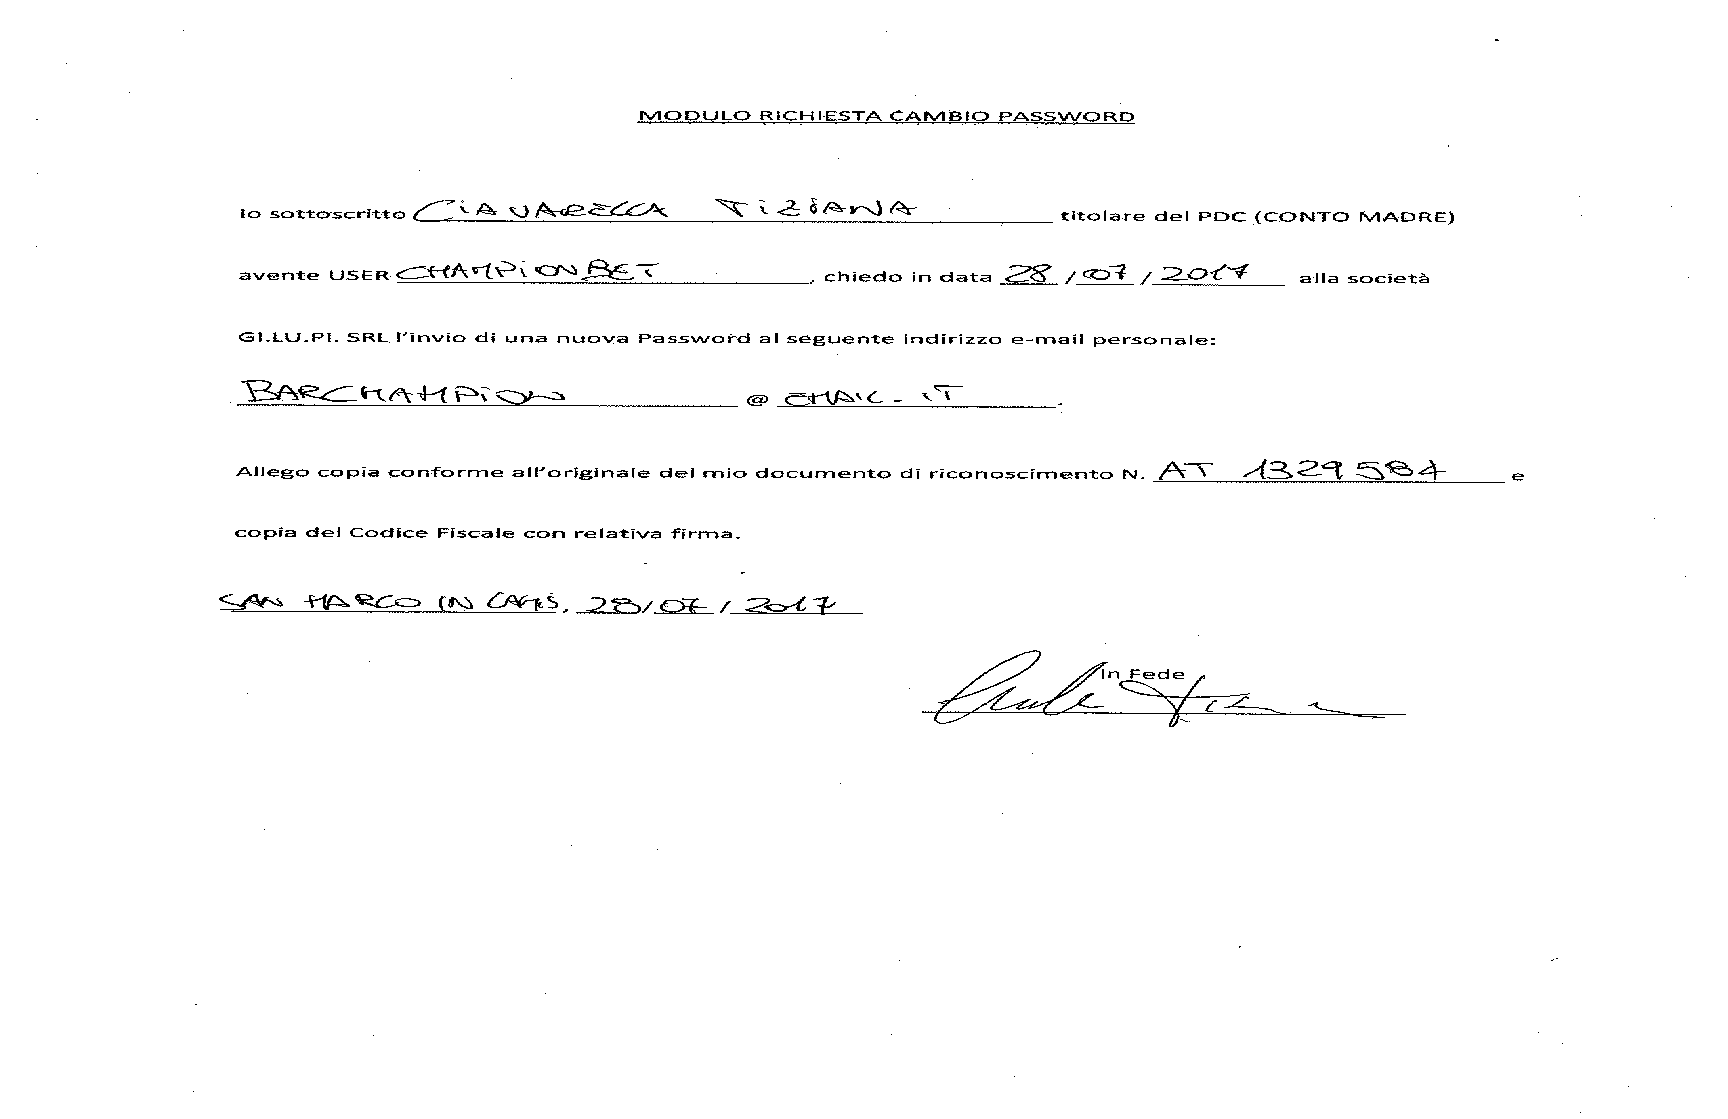 MODULO RICHIESTA CAMBIO PASSWORD
Io sottoscritto CiAVARELLA TiZiANA titolare del PDC (CONTO MADRE)
avente USER CHAMPiONBET, chiedo in data 28 / 07 / 2017 alla società
GI.LU.PI. SRL l'invio di una nuova Password al seguente indirizzo e-mail personale:
BARCHAMPiON @ EMAIL.IT.
Allego copia conforme all'originale del mio documento di riconoscimento N. AT 1329584 e
copia del Codice Fiscale con relativa firma.
SAN MARCO IN LAMIS, 28/07/2017
In Fede